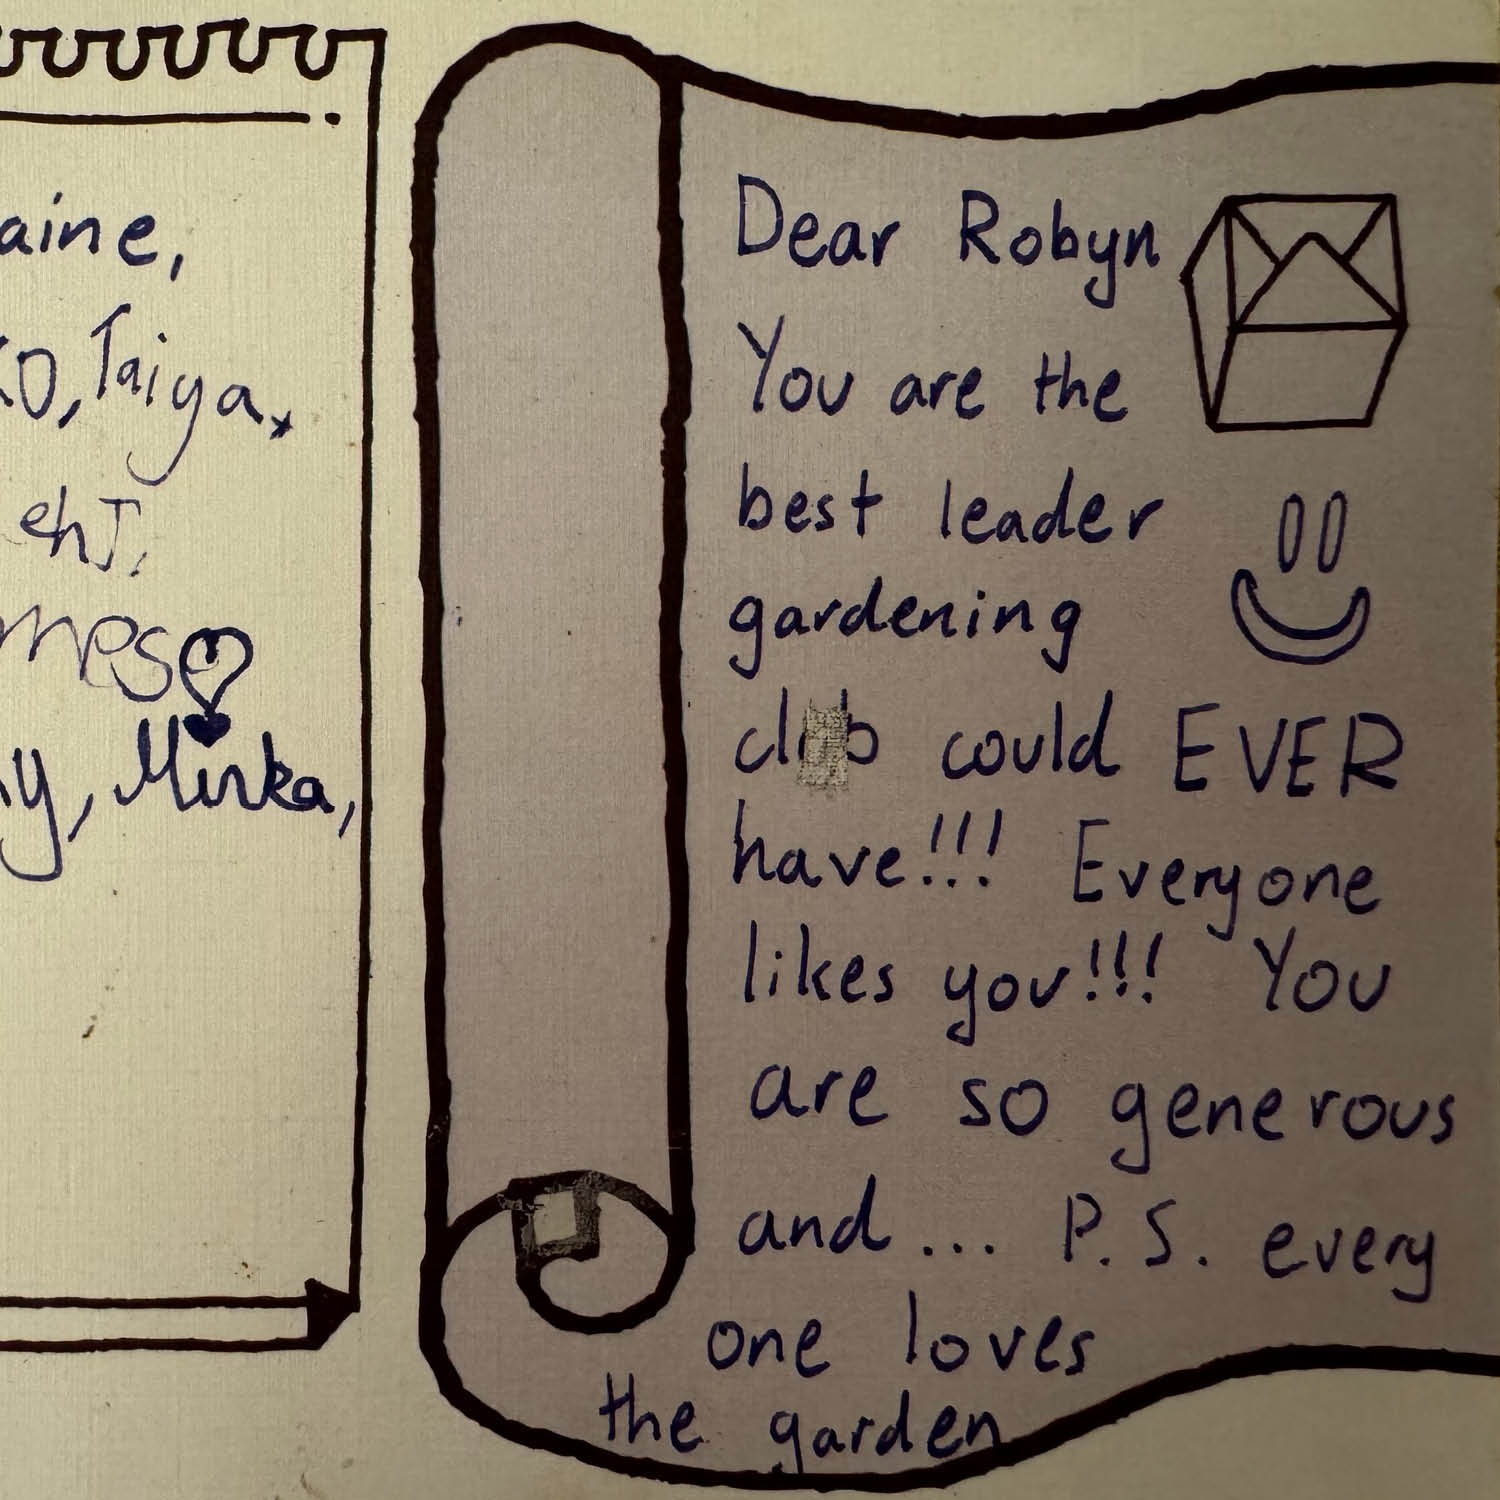 aine,
Taiya,
Mirka,
Dear Robyn
You are the
best leader
gardening
club could EVER
have!!! Everyone
likes you!!! You
are so generous
and... P.S. every
one loves
the garden